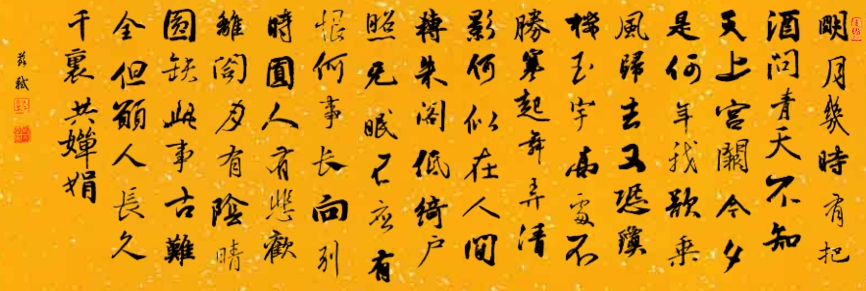 明月幾時有把
酒問青天不知
天上宮闕今夕
是何年我欲乘
風歸去又恐瓊
樓玉宇高處不
勝寒起舞弄清
影何似在人間
轉朱閣低綺戶
照无眠不應有
恨何事长向別
時圓人有悲歡
離閤月有陰晴
圓缺此事古難
全但願人長久
千裏共嬋娟
蘇軾